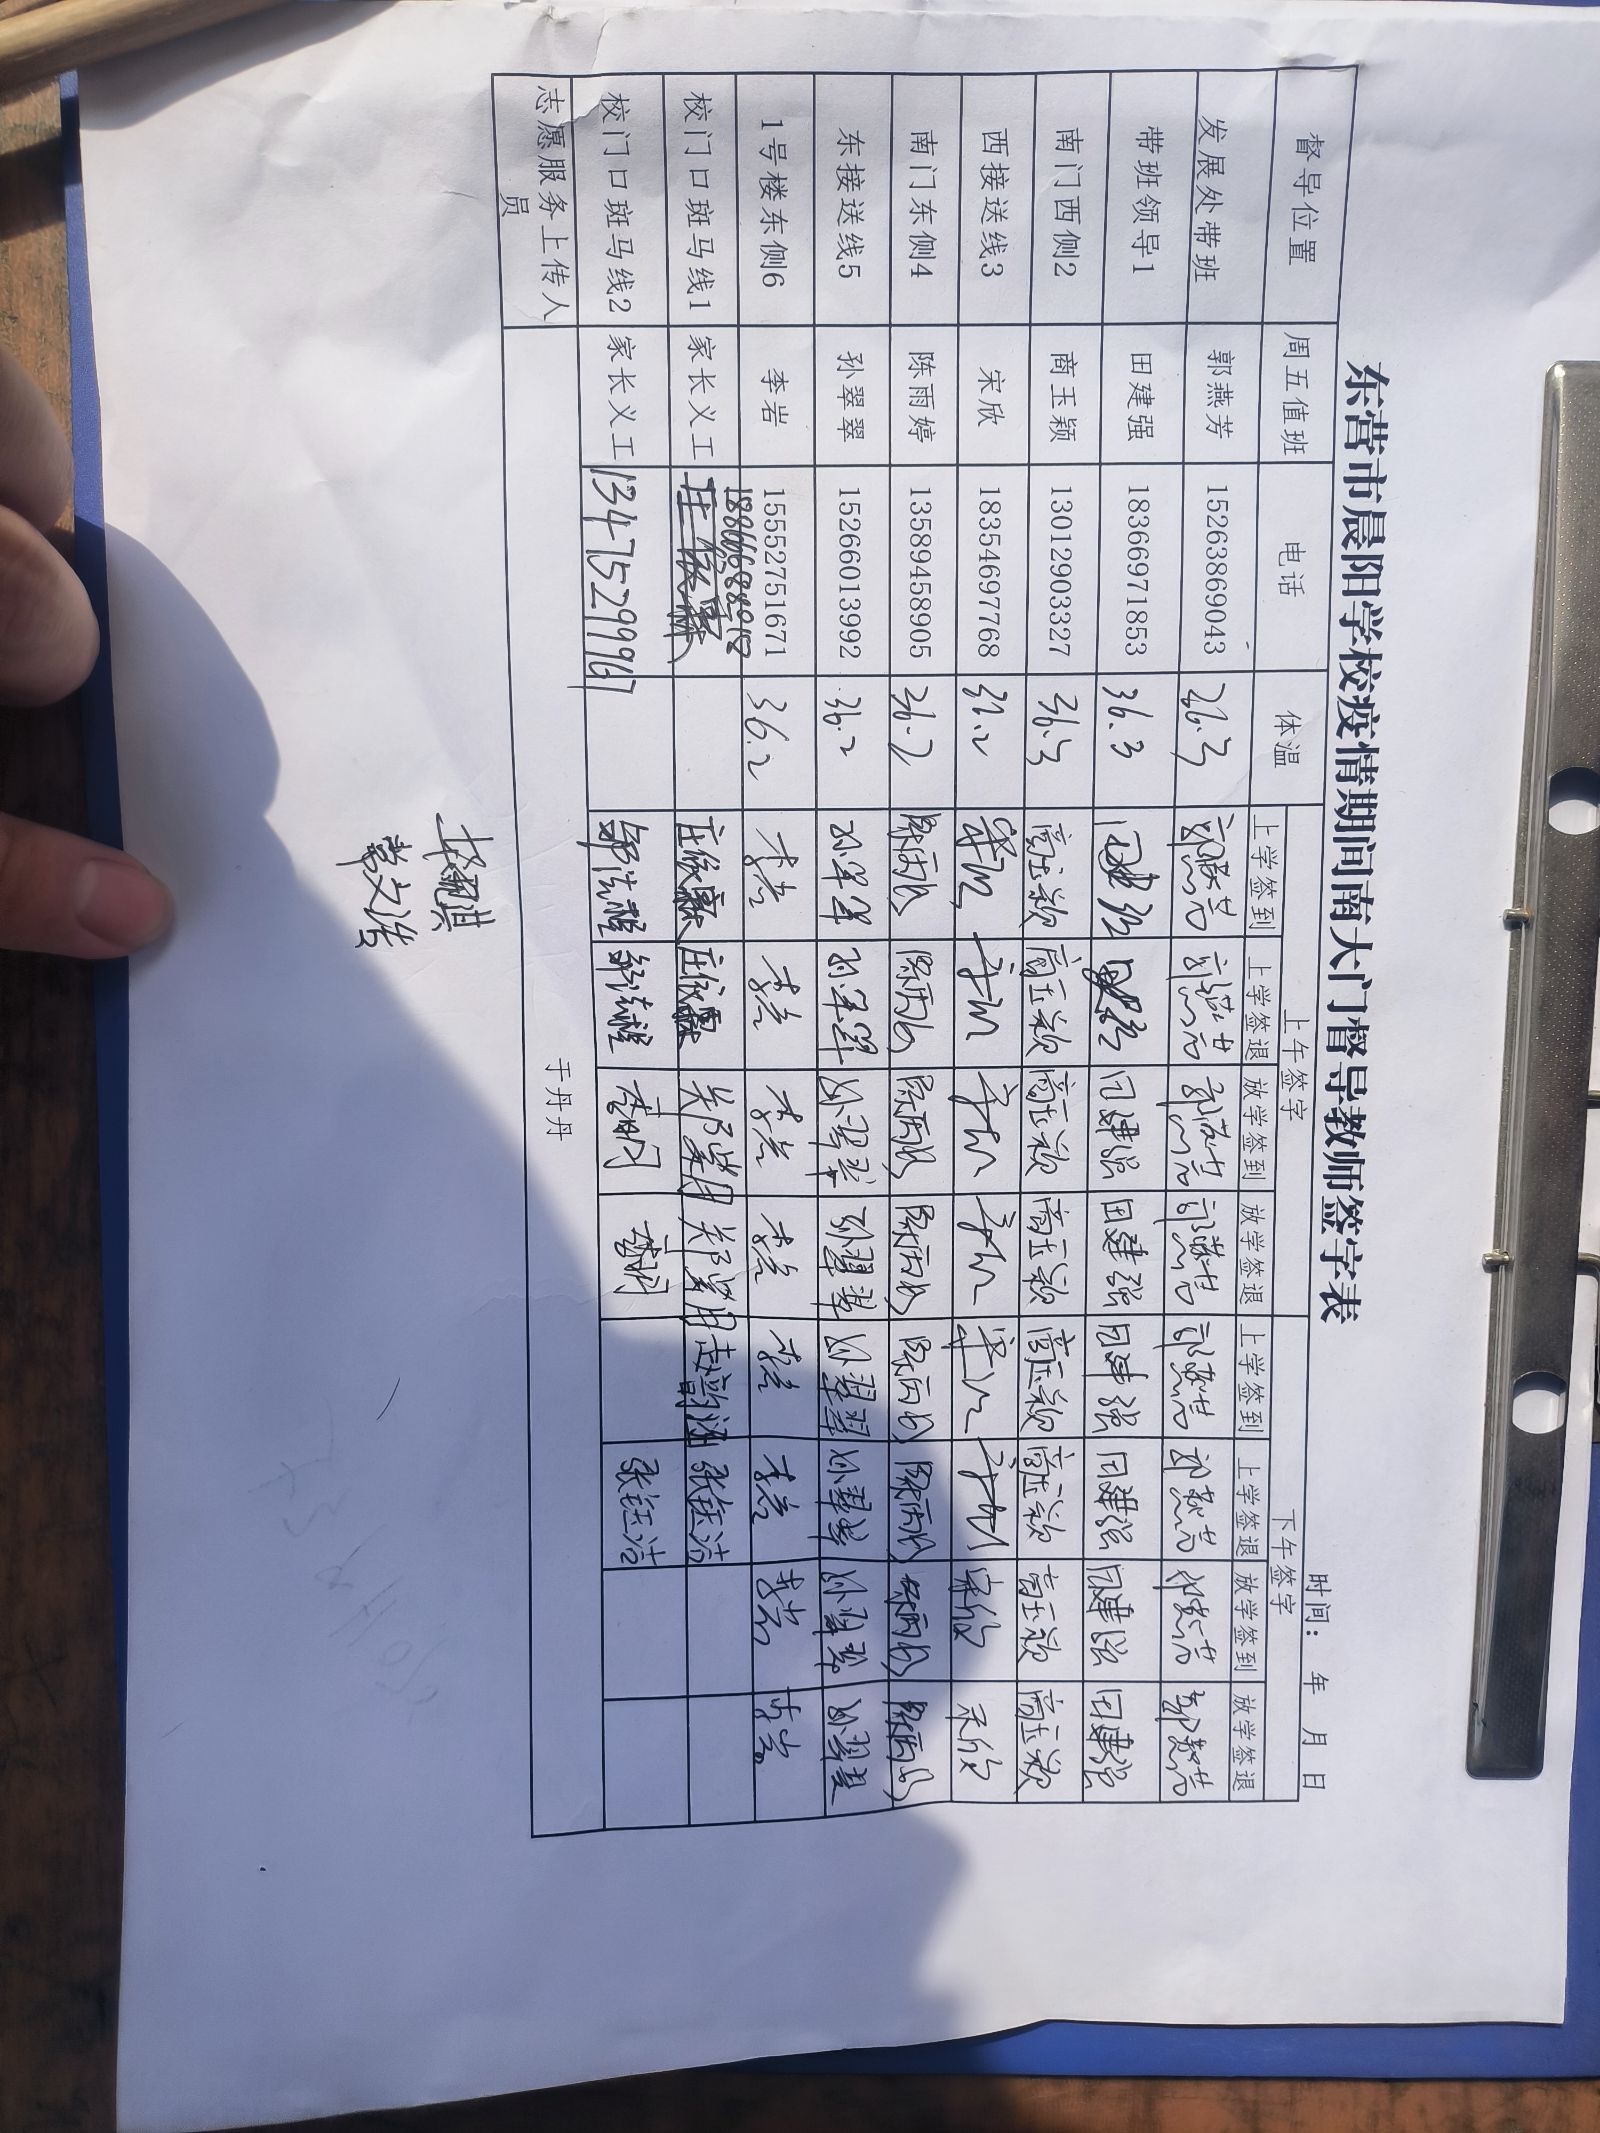 东营市晨阳学校疫情期间南大门督导教师签字表
时间： 年 月 日
督导位置 周五值班 电话 体温 上午签字 下午签字
上学签到 上学签退 放学签到 放学签退 上学签到 上学签退 放学签到 放学签退
发展处带班 郭燕芳 15263869043 36.3 郭燕芳 郭燕芳 郭燕芳 郭燕芳 郭燕芳 郭燕芳 郭燕芳 郭燕芳
带班领导1 田建强 18366971853 36.3 田建强 田建强 田建强 田建强 田建强 田建强 田建强 田建强
南门西侧2 商玉颖 13012903327 36.3 商玉颖 商玉颖 商玉颖 商玉颖 商玉颖 商玉颖 商玉颖 商玉颖
西接送线3 宋欣 18354697768 宋欣 宋欣 宋欣 宋欣 宋欣 宋欣 宋欣 宋欣
南门东侧4 陈雨婷 13589458905 36.2 陈雨婷 陈雨婷 陈雨婷 陈雨婷 陈雨婷 陈雨婷 陈雨婷 陈雨婷
东接送线5 孙翠翠 15266013992 36.2 孙翠翠 孙翠翠 孙翠翠 孙翠翠 孙翠翠 孙翠翠 孙翠翠 孙翠翠
1号楼东侧6 李岩 15552751671 36.2 李岩 李岩 李岩 李岩 李岩 李岩 李岩 李岩
校门口斑马线1 家长义工 赵韵涵 张钰洁
校门口斑马线2 家长义工 13475299967 张钰洁
志愿服务上传人员 于丹丹
常文浩